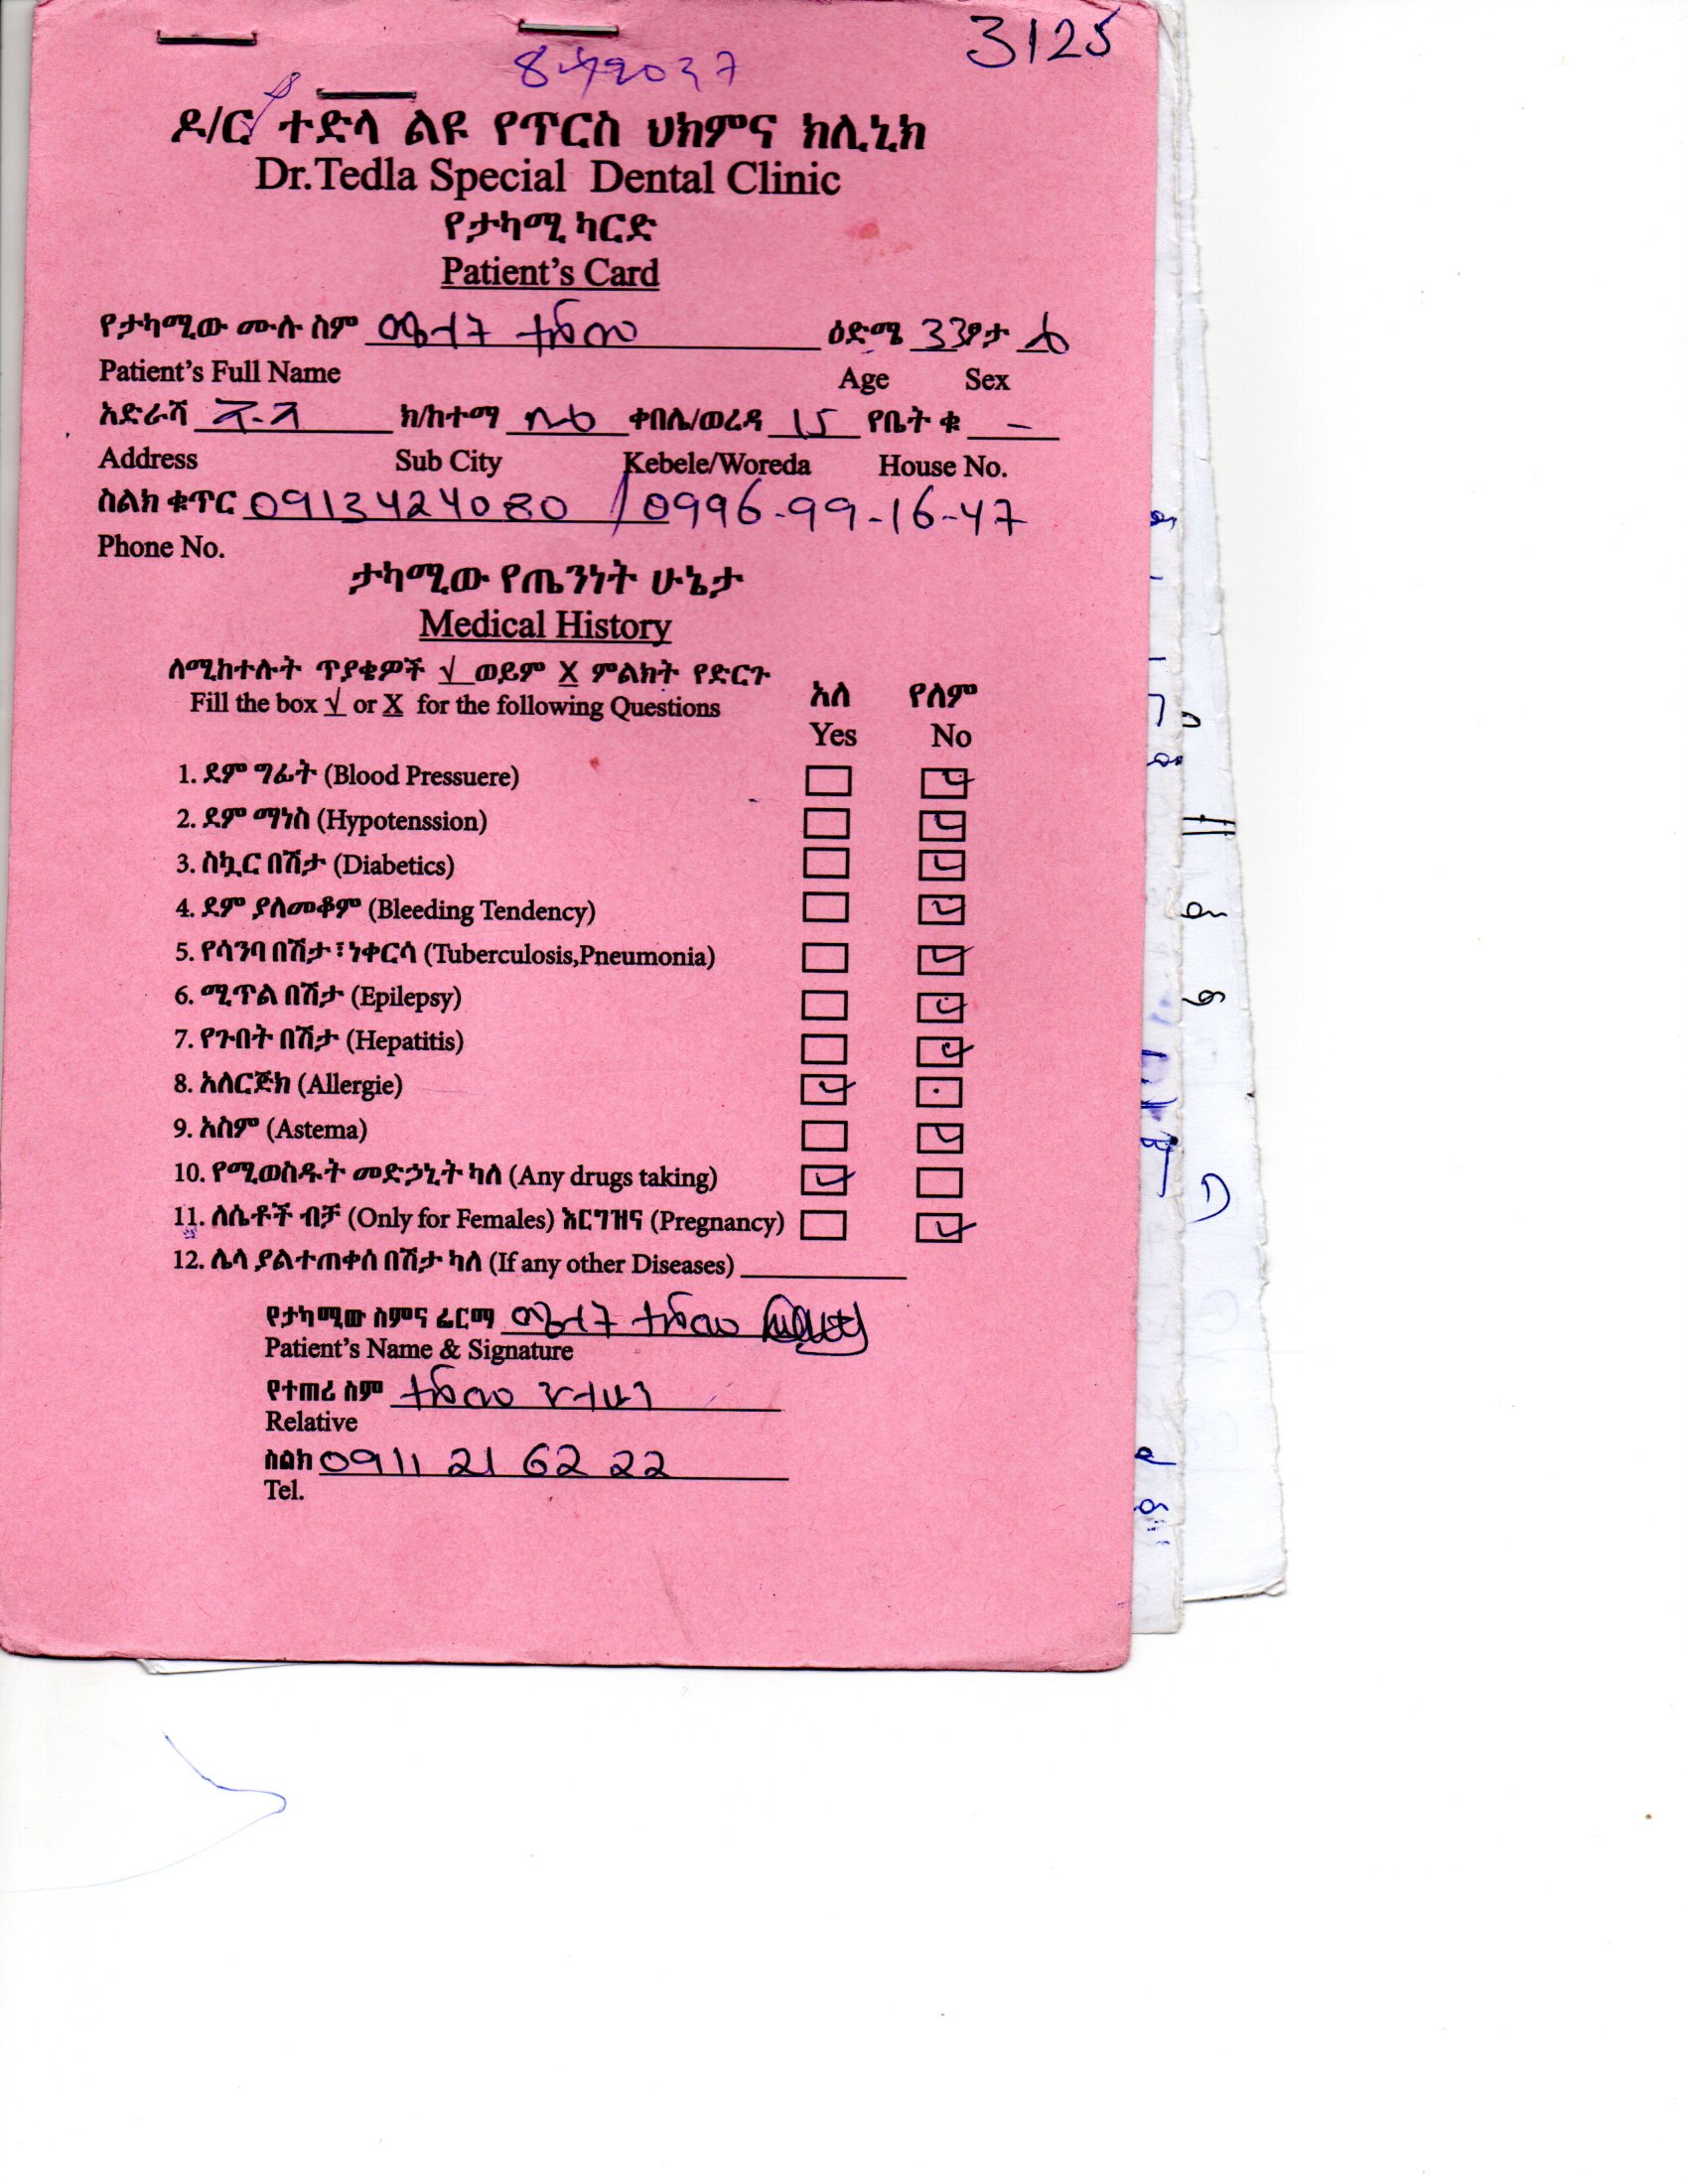 3125
ዶ/ር ተድላ ልዩ የጥርስ ህክምና ክሊኒክ
Dr.Tedla Special Dental Clinic
የታካሚ ካርድ
Patient's Card
የታካሚው ሙሉ ስም ዕድሜ 33 ፆታ
Patient's Full Name Age Sex
አድራሻ ክ/ከተማ ቀበሌ/ወረዳ 15 የቤት ቁ -
Address Sub City Kebele/Woreda House No.
ስልክ ቁጥር 0913424080 / 0996-99-16-47
Phone No.
ታካሚው የጤንነት ሁኔታ
Medical History
ለሚከተሉት ጥያቄዎች √ ወይም X ምልክት የድርጉ
Fill the box √ or X for the following Questions
አለ የለም
Yes No
1. ደም ግፊት (Blood Pressuere)
2. ደም ማነስ (Hypotenssion)
3. ስኳር በሽታ (Diabetics)
4. ደም ያለመቆም (Bleeding Tendency)
5. የሳንባ በሽታ፣ ነቀርሳ (Tuberculosis,Pneumonia)
6. ሚጥል በሽታ (Epilepsy)
7. የጉበት በሽታ (Hepatitis)
8. አለርጅክ (Allergie)
9. አስም (Astema)
10. የሚወስዱት መድኃኒት ካለ (Any drugs taking)
11. ለሴቶች ብቻ (Only for Females) እርግዝና (Pregnancy)
12. ሌላ ያልተጠቀሰ በሽታ ካለ (If any other Diseases)
የታካሚው ስምና ፊርማ
Patient's Name & Signature
የተጠሪ ስም
Relative
ስልክ 0911 21 62 22
Tel.